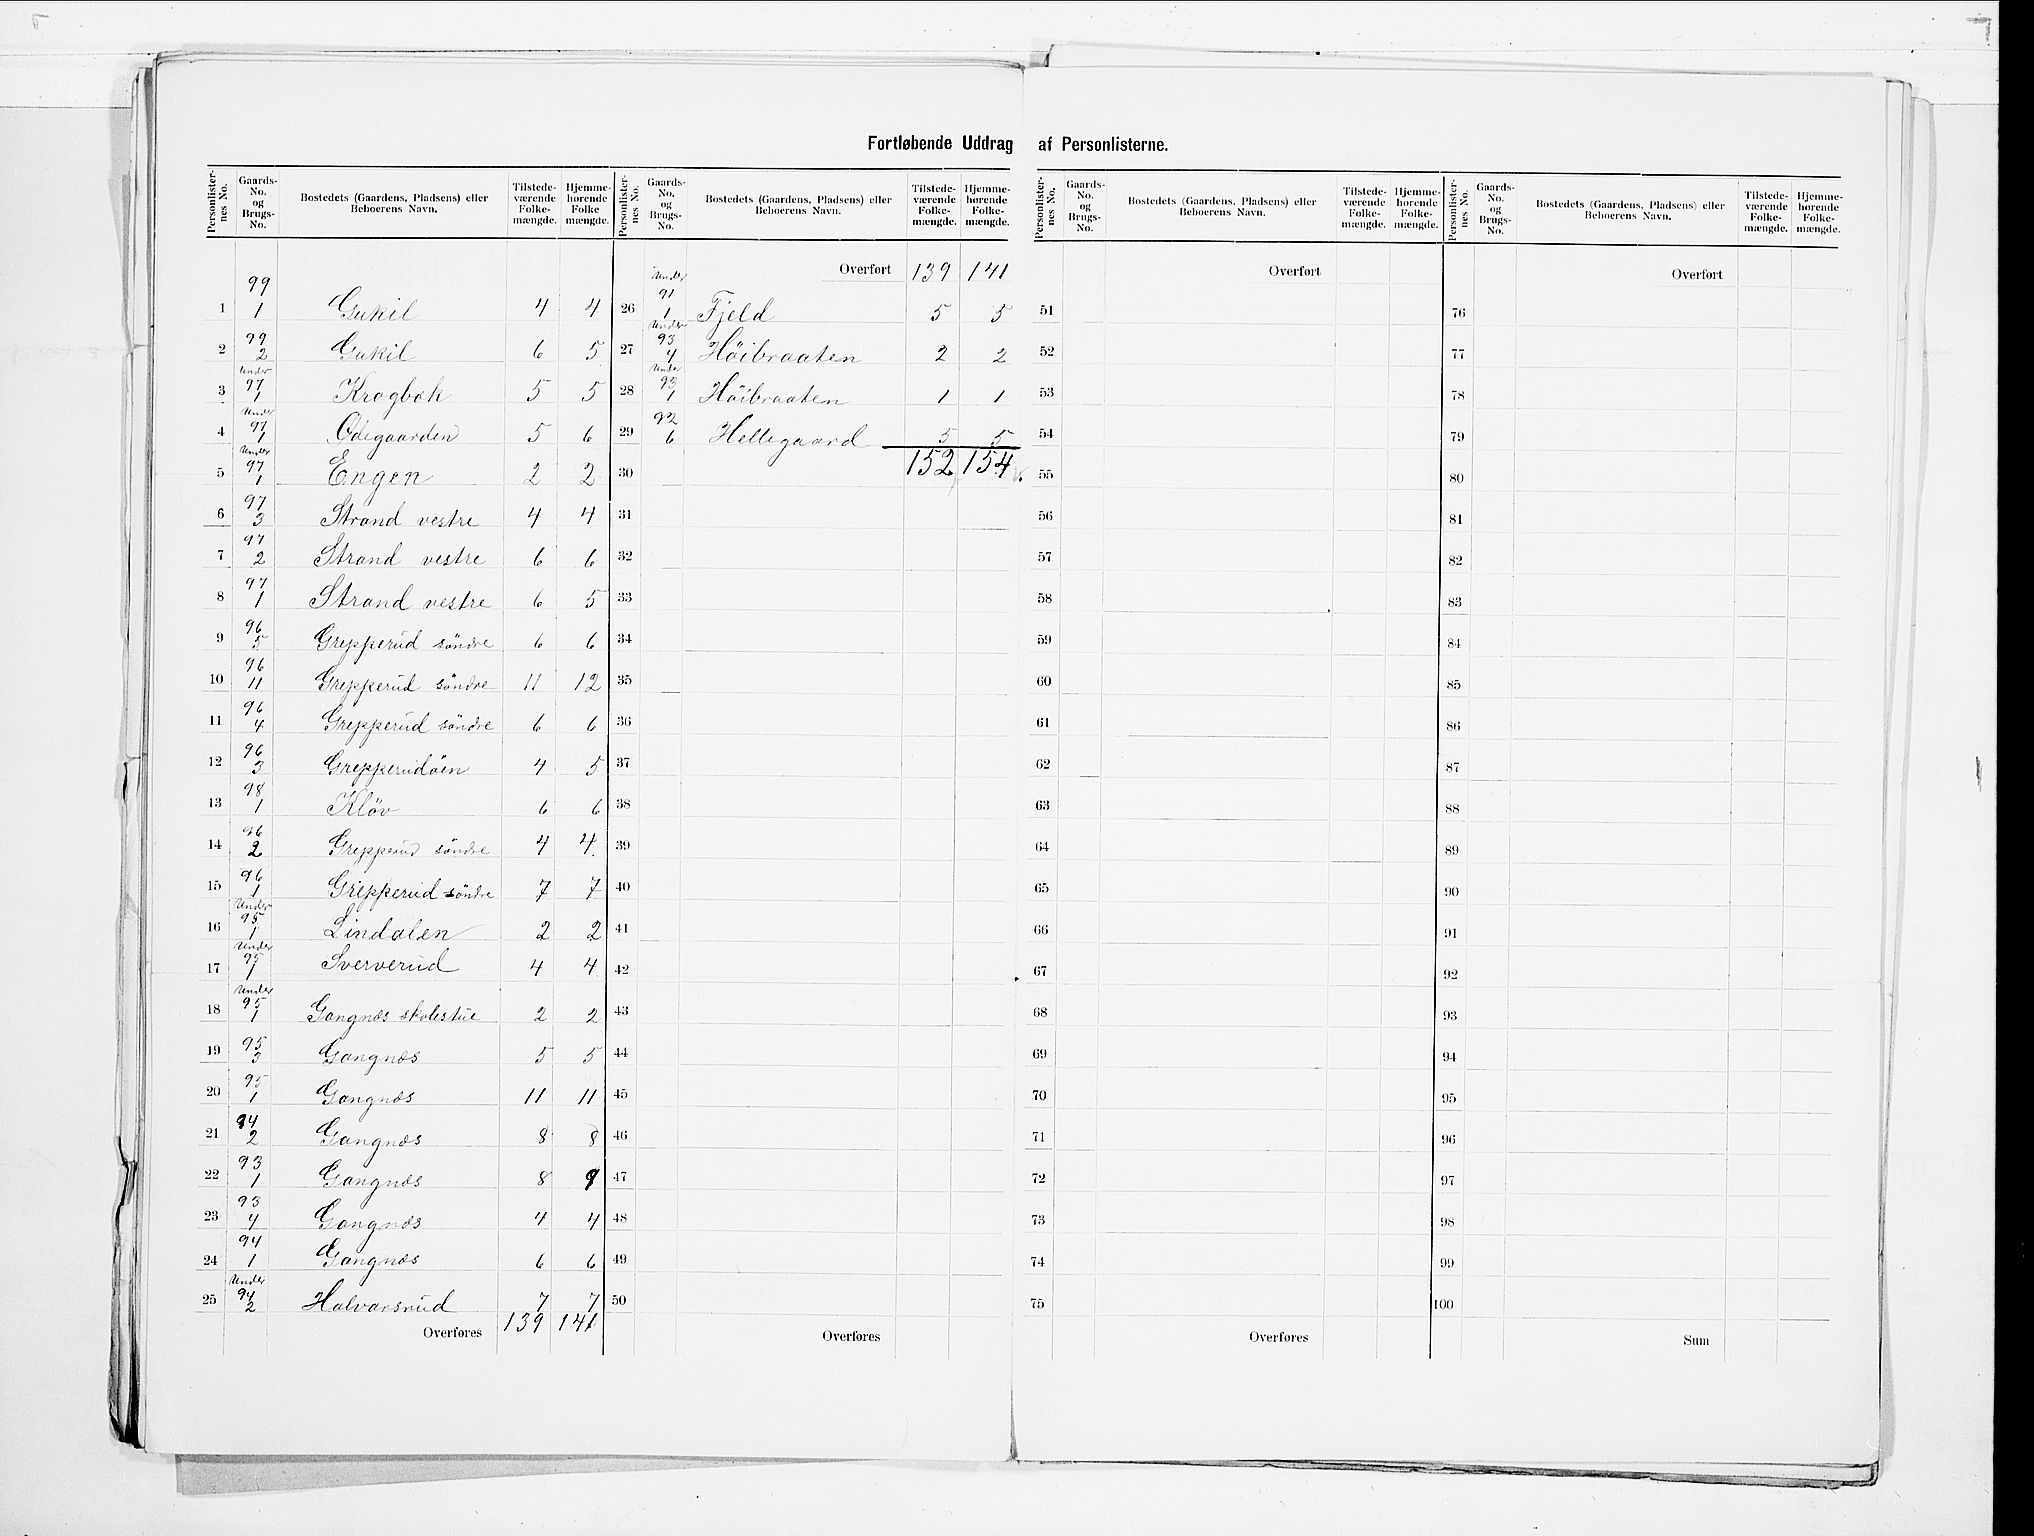 Fortløbende Uddrag af Personlisterne.
Personlister-nes No. Gaards-No. og Brugs-No. Bostedets (Gaardens, Pladsens) eller Beboerens Navn. Tilstede-værende Folke-mængde. Hjemme-hørende Folke mængde.
1 99 1 Gukil 4 4
2 99 2 Gukil 6 5
3 Under 97 1 Krogbæk 5 5
4 Under 97 1 Ödegaarden 5 6
5 Under 97 1 Engen 2 2
6 97 3 Strand vestre 4 4
7 97 2 Strand vestre 6 6
8 97 1 Strand vestre 6 5
9 96 5 Grepperud söndre 6 6
10 96 11 Grepperud söndre 11 12
11 96 4 Grepperud söndre 6 6
12 96 3 Grepperudöen 4 5
13 98 1 Klöv 6 6
14 96 2 Grepperud söndre 4 4
15 96 1 Grepperud söndre 7 7
16 Under 95 1 Lindalen 2 2
17 Under 95 1 Sververud 4 4
18 Under 95 1 Gangnæs skolestue 2 2
19 95 3 Gangnæs 5 5
20 95 1 Gangnæs 11 11
21 94 2 Gangnæs 8 8
22 93 1 Gangnæs 8 9
23 93 4 Gangnæs 4 4
24 94 1 Gangnæs 6 6
25 Under 94 2 Halvarsrud 7 7
Overføres 139 141
Personlister-nes No. Gaards-No. og Brugs-No. Bostedets (Gaardens, Pladsens) eller Beboerens Navn. Tilstede-værende Folke-mængde. Hjemme-hørende Folke-mængde.
Overført 139 141
26 Under 91 1 Fjeld 5 5
27 Under 93 4 Höibraaten 2 2
28 Under 93 1 Höibraaten 1 1
29 92 6 Hellegaard 5 5
30 152 154
31
32
33
34
35
36
37
38
39
40
41
42
43
44
45
46
47
48
49
50
Overføres
Personlister-nes No. Gaards-No. og Brugs-No. Bostedets (Gaardens, Pladsens) eller Beboerens Navn. Tilstede-værende Folke-mængde. Hjemme-hørende Folke-mængde.
Overført
51
52
53
54
55
56
57
58
59
60
61
62
63
64
65
66
67
68
69
70
71
72
73
74
75
Overføres
Personlister-nes No. Gaards-No. og Brugs-No. Bostedets (Gaardens, Pladsens) eller Beboerens Navn. Tilstede-værende Folke-mængde. Hjemme-hørende Folke-mængde.
Overført
76
77
78
79
80
81
82
83
84
85
86
87
88
89
90
91
92
93
94
95
96
97
98
99
100
Sum